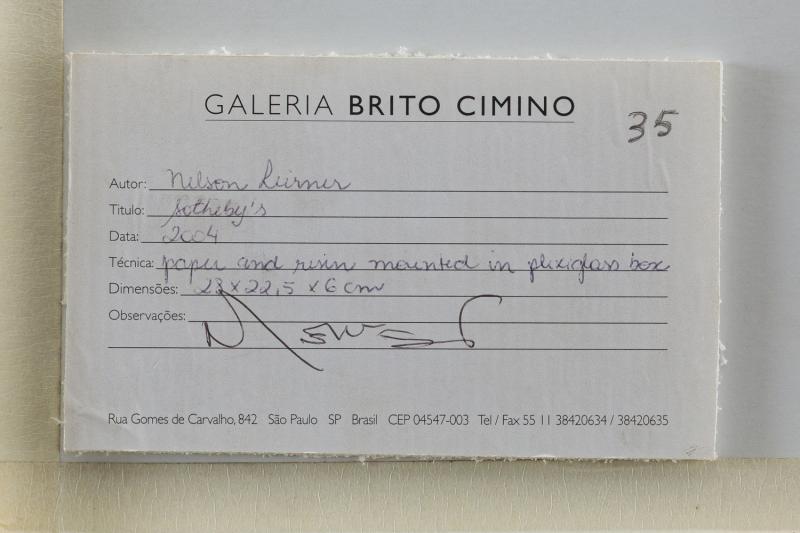 GALERIA BRITO CIMINO
35
Autor: Nelson Leirner
Titulo: Sotheby's
Data: 2004
Técnica: paper and resin mounted in plexiglass box
Dimensões: 23 x 22,5 x 6 cm
Observações:
Rua Gomes de Carvalho, 842 São Paulo SP Brasil CEP 04547-003 Tel / Fax 55 11 38420634 / 38420635